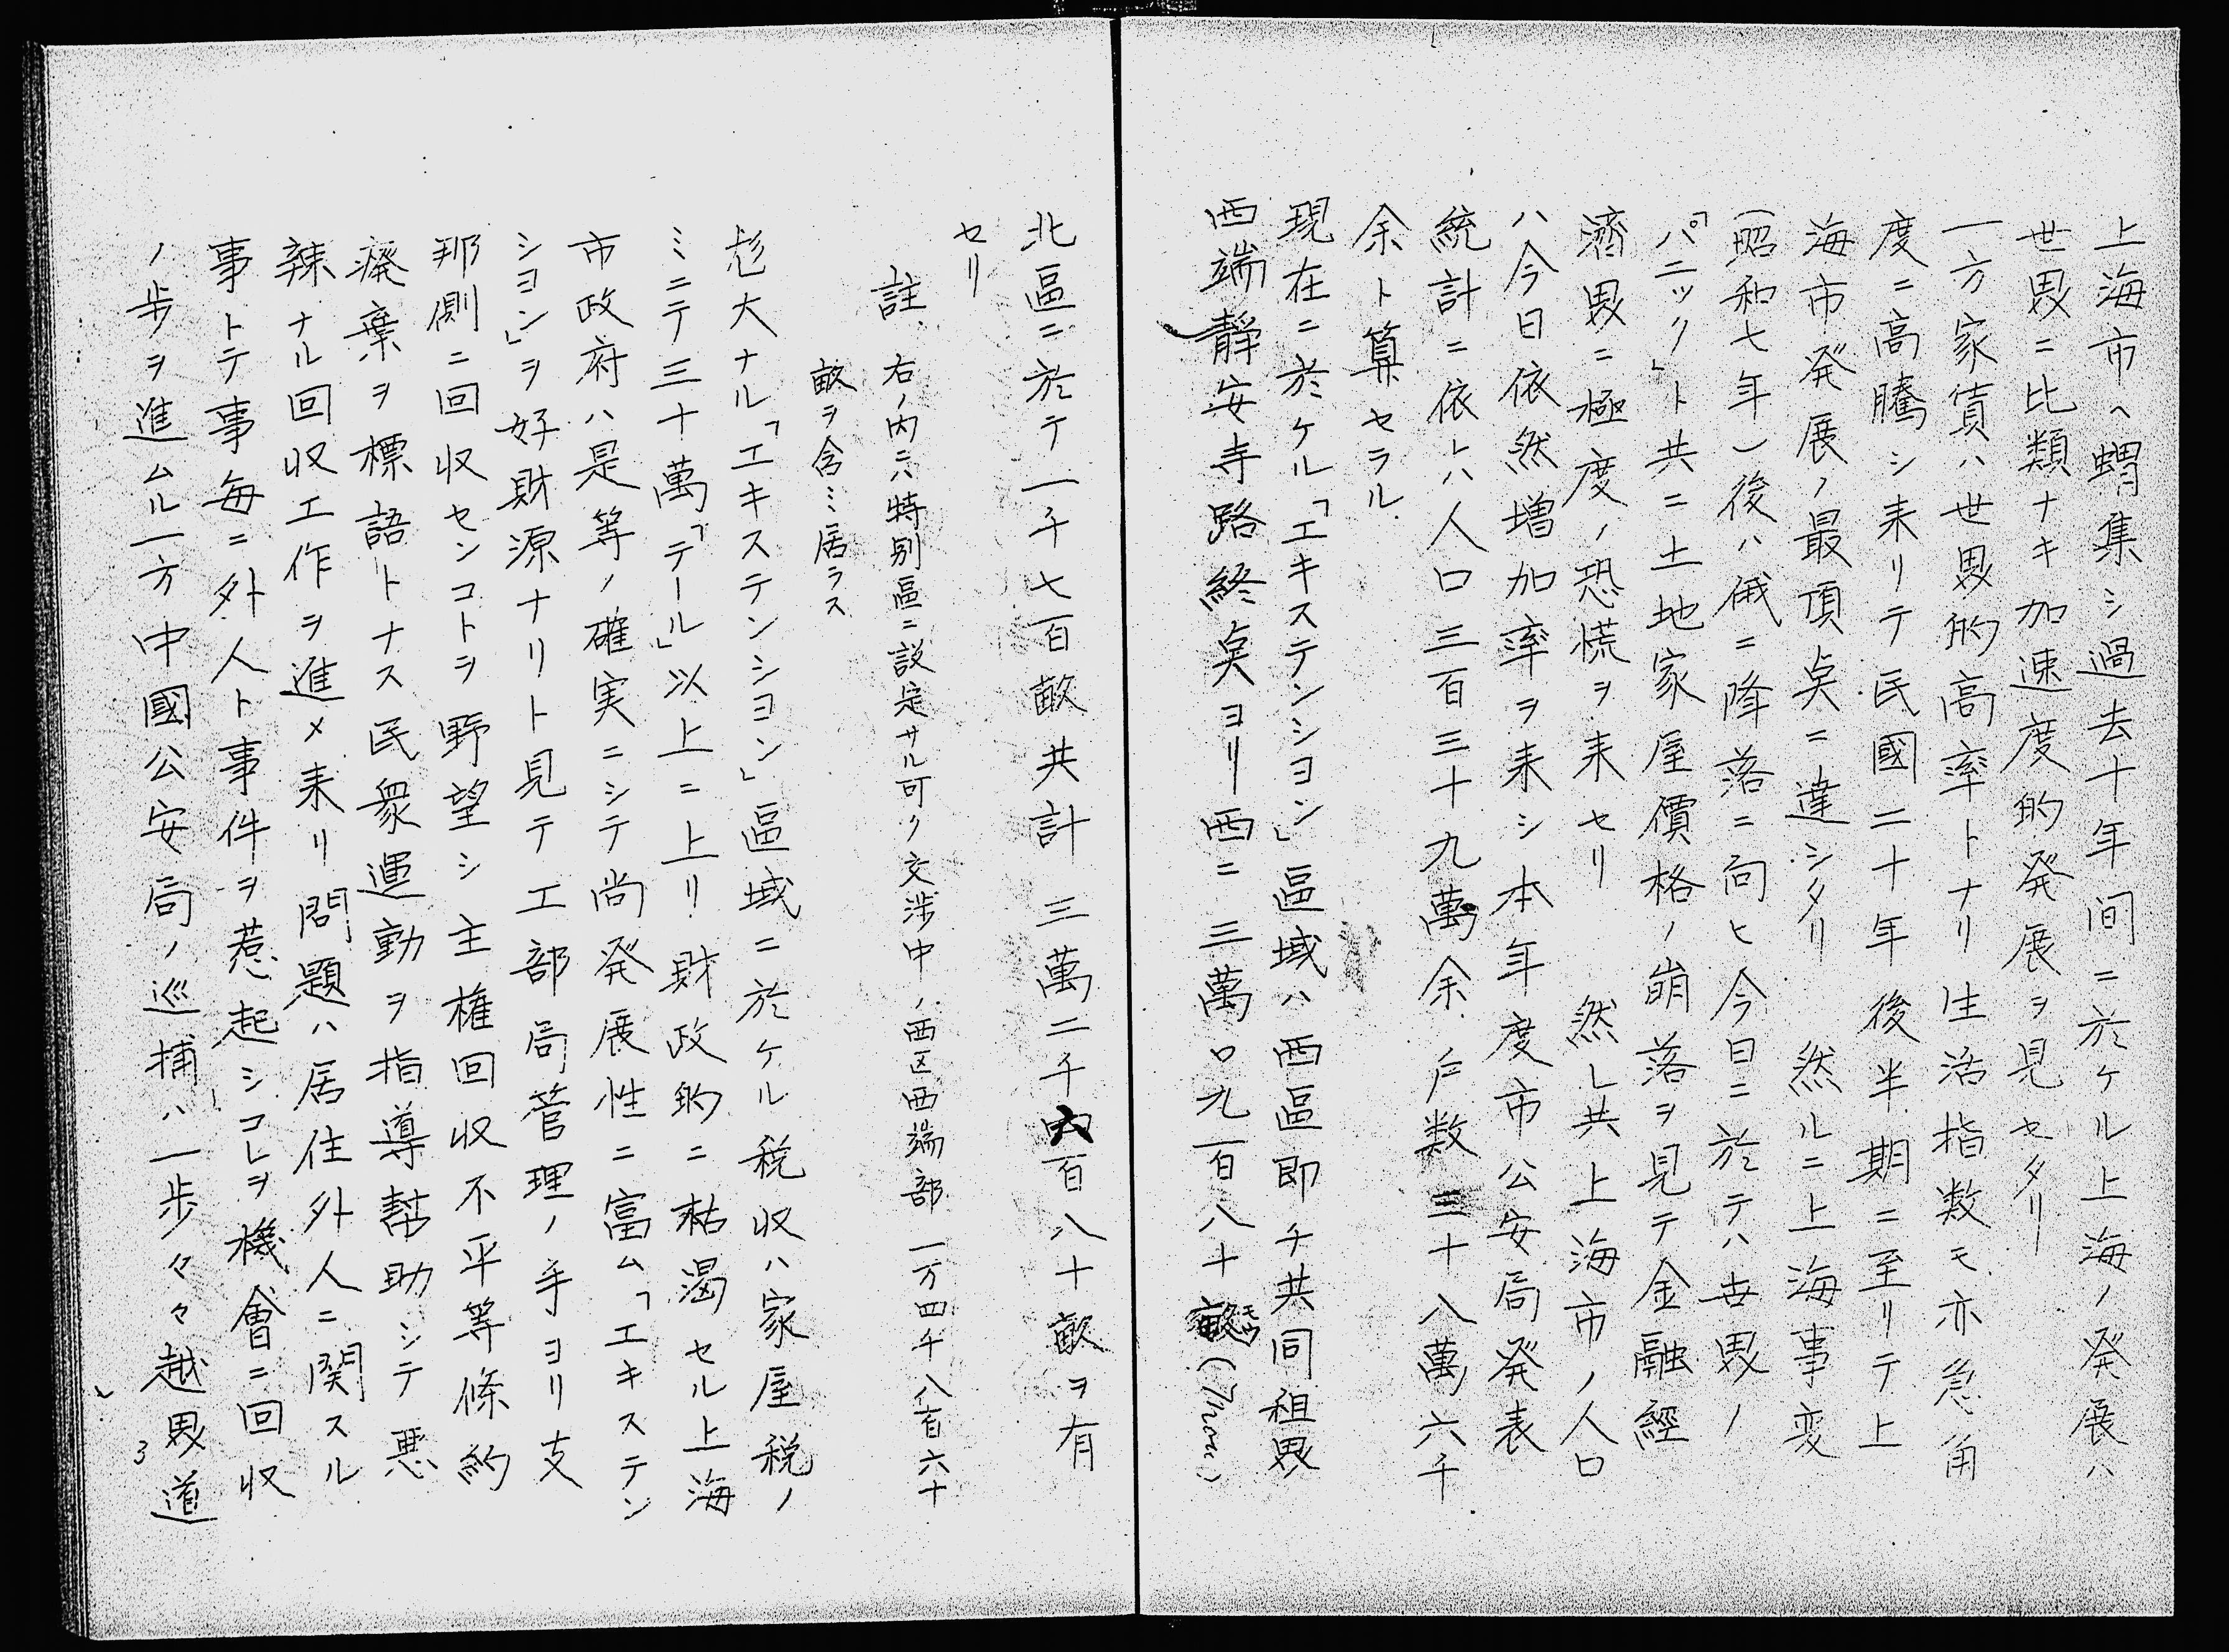 上海市ヘ蝟集シ過去十年间ニ於ケル上海ノ発展ハ
世界ニ比類ナキ加速度的発展ヲ見セタリ
一方家賃ハ世界的高率トナリ生活指数モ亦急角
度ニ高騰シ来リテ民國二十年後半期ニ至リテ上
海市発展ノ最頂点ニ達シタリ 然ルニ上海事変
(昭和七年)後ハ俄ニ降落ニ向ヒ今日ニ於テハ世界ノ
「パニック」ト共ニ土地家屋價格ノ崩落ヲ見テ金融經
濟界ニ極度ノ恐慌ヲ来セリ 然レ共上海市ノ人口
ハ今日依然増加率ヲ来シ本年度市公安局発表
統計ニ依レハ人口三百三十九萬余戸数三十八萬六千
余ト算セラル
現在ニ於ケル「エキステンシヨン」區域ハ西區即チ共同租界
西端靜安寺路終点ヨリ西ニ三萬〇九百八十畝(Mow)
北區ニ於テ一千七百畝共計三萬二千六百八十畝ヲ有
セリ
註、右ノ内ニハ特別區ニ設定サル可ク交渉中ノ西区西端部一万四千八百六十
畝ヲ含ミ居ラス
尨大ナル「エキステンシヨン」區域ニ於ケル税収ハ家屋税ノ
ミニテ三十萬「テール」以上ニ上リ財政的ニ枯渇セル上海
市政府ハ是等ノ確実ニシテ尚発展性ニ富ム「エキステン
シヨン」ヲ好財源ナリト見テ工部局管理ノ手ヨリ支
那側ニ回収センコトヲ野望シ主権回収不平等條約
癈棄ヲ標語トナス民衆運動ヲ指導幇助シテ悪
辣ナル回収工作ヲ進メ来リ問題ハ居住外人ニ関スル
事トテ事毎ニ外人ト事件ヲ惹起シコレヲ機會ニ回収
ノ歩ヲ進ムル一方中國公安局ノ巡捕ハ一歩々々越界道
3